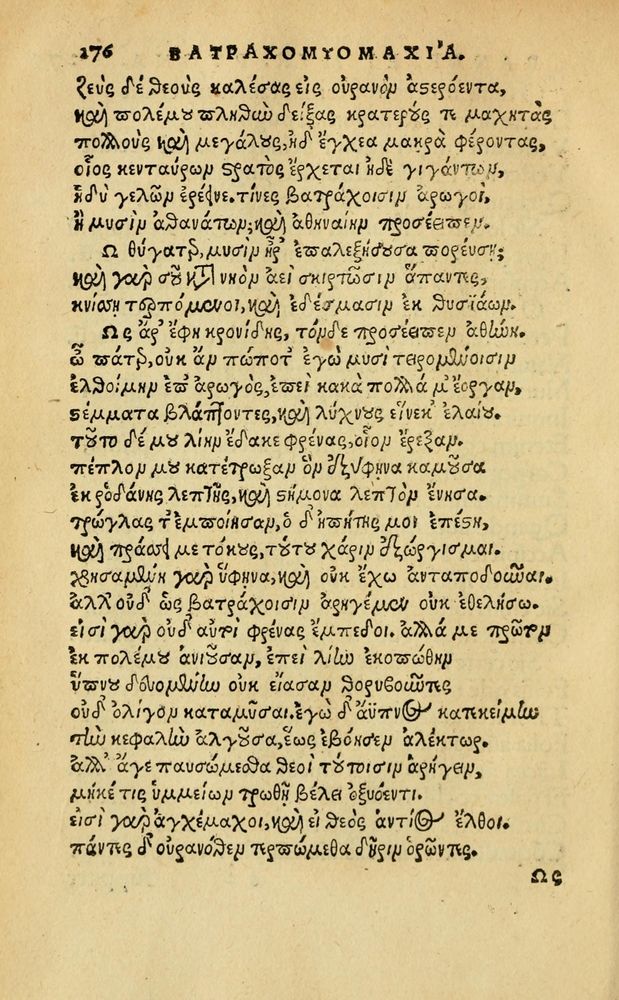 276 ΒΑΤΡΑΧΟΜΥΟΜΑΧΙ'Α.
Ζεὺς δὲ θεοὺς καλέσας εἰς οὐρανὸν ἀστερόεντα,
καὶ πολέμου πληθὼ δείξας κρατερούς τε μαχητὰς
πολλοὺς καὶ μεγάλους, ἠδ' ἔγχεα μακρὰ φέροντας,
οἷος κενταύρων στρατὸς ἔρχεται ἠδὲ γιγάντων,
ἡδὺ γελῶν ἐρέεινε. τίνες βατράχοισιν ἀρωγοὶ,
ἢ μυσὶν ἀθανάτων; καὶ ἀθηναίην προσέειπεν.
Ω θύγατερ, μυσὶν ἦρ' ἐπαλεξήσουσα πορεύσῃ;
καὶ γὰρ σοῦ κατὰ νηὸν ἀεὶ σκιρτῶσιν ἅπαντες,
κνίσσῃ τερπόμενοι, καὶ ἐδέσμασιν ἐκ θυσιάων.
Ως ἄρ' ἔφη κρονίδης, τὸν δε προσέειπεν ἀθήνη.
ὦ πάτερ, οὐκ ἂν πώποτ' ἐγὼ μυσὶ τειρομένοισιν
ἐλθοίμην ἐπαρωγὸς, ἐπεὶ κακὰ πολλά μ' ἔοργαν,
στέμματα βλάπτοντες, καὶ λύχνους εἵνεκ' ἐλαίου.
τοῦτο δέ μου λίην ἔδακε φρένας, οἷον ἔρεξαν.
πέπλον μου κατέτρωξαν ὃν ἐξυφηνα καμοῦσα
ἐκ ῥοδάνης λεπτῆς, καὶ στήμονα λεπτὸν ἔνησα.
τρώγλας τ' ἐμποίησαν, ὁ δ' ἠπητής μοι ἐπέστη,
καὶ πράσσει με τόκους, τούτου χάριν ἐξώργισμαι.
χρησαμένη γὰρ ὕφηνα, καὶ οὐκ ἔχω ἀνταποδοῦναι.
ἀλλ' οὐδ' ὣς βατράχοισιν ἀρηγέμεν οὐκ ἐθελήσω.
εἰσὶ γὰρ οὐδ' αὐτοὶ φρένας ἔμπεδοι. ἀλλά με πρῶτην
ἐκ πολέμου ἀνιοῦσαν, ἐπεὶ λίην ἐκοπώθην
ὕπνου δευομένην οὐκ εἴασαν θορυβοῦντες
οὐδ' ὀλίγον καταμῦσαι. ἐγὼ δ' ἄϋπνος κατεκείμην
τὴν κεφαλὴν ἀλγοῦσα, ἕως ἐβόησεν ἀλέκτωρ.
ἀλλ' ἄγε παυσώμεσθα θεοὶ τούτοισιν ἀρήγειν,
μήκέ τις ὑμμείων τρωθῇ βέλει ὀξυόεντι.
εἰσὶ γὰρ ἀγχέμαχοι, καὶ εἰ θεὸς ἀντίος ἔλθοι.
πάντες δ' οὐρανόθεν τερπώμεθα δῆριν ὁρῶντες.
Ως